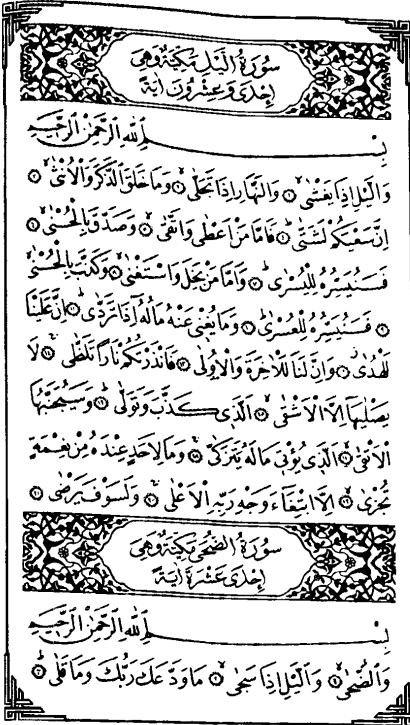 سُورَةُ الَّيْلِ مَكِّيَّةٌ وَهِىَ
إِحْدٰى وَعِشْرُونَ اٰيَةً
بِسْمِ اللّٰهِ الرَّحْمٰنِ الرَّحِيمِ
وَالَّيْلِ اِذَا يَغْشٰىۙ ﴿١﴾ وَالنَّهَارِ اِذَا تَجَلّٰىۙ ﴿٢﴾ وَمَا خَلَقَ الذَّكَرَ وَالْاُنْثٰىۙ ﴿٣﴾
اِنَّ سَعْيَكُمْ لَشَتّٰىۜ ﴿٤﴾ فَاَمَّا مَنْ اَعْطٰى وَاتَّقٰىۙ ﴿٥﴾ وَصَدَّقَ بِالْحُسْنٰىۙ ﴿٦﴾
فَسَنُيَسِّرُهُ لِلْيُسْرٰىۜ ﴿٧﴾ وَاَمَّا مَنْ بَخِلَ وَاسْتَغْنٰىۙ ﴿٨﴾ وَكَذَّبَ بِالْحُسْنٰىۙ
﴿٩﴾ فَسَنُيَسِّرُهُ لِلْعُسْرٰىۜ ﴿١٠﴾ وَمَا يُغْنٖى عَنْهُ مَالُهُٓ اِذَا تَرَدّٰىۜ ﴿١١﴾ اِنَّ عَلَيْنَا
لَلْهُدٰىۘ ﴿١٢﴾ وَاِنَّ لَنَا لَلْاٰخِرَةَ وَالْاُو۫لٰى ﴿١٣﴾ فَاَنْذَرْتُكُمْ نَارًا تَلَظّٰىۚ ﴿١٤﴾ لَا
يَصْلٰيهَٓا اِلَّا الْاَشْقٰىۙ ﴿١٥﴾ اَلَّذٖى كَذَّبَ وَتَوَلّٰىۜ ﴿١٦﴾ وَسَيُجَنَّبُهَا
الْاَتْقٰىۙ ﴿١٧﴾ اَلَّذٖى يُؤْتٖى مَالَهُ يَتَزَكّٰىۚ ﴿١٨﴾ وَمَا لِاَحَدٍ عِنْدَهُ مِنْ نِعْمَةٍ
تُجْزٰىۙ ﴿١٩﴾ اِلَّا ابْتِغَٓاءَ وَجْهِ رَبِّهِ الْاَعْلٰىۚ ﴿٢٠﴾ وَلَسَوْفَ يَرْضٰى ﴿٢١﴾
سُورَةُ الضُّحٰى مَكِّيَّةٌ وَهِىَ
إِحْدٰى عَشْرَةَ اٰيَةً
بِسْمِ اللّٰهِ الرَّحْمٰنِ الرَّحِيمِ
وَالضُّحٰىۙ ﴿١﴾ وَالَّيْلِ اِذَا سَجٰىۙ ﴿٢﴾ مَا وَدَّعَكَ رَبُّكَ وَمَا قَلٰىۜ ﴿٣﴾